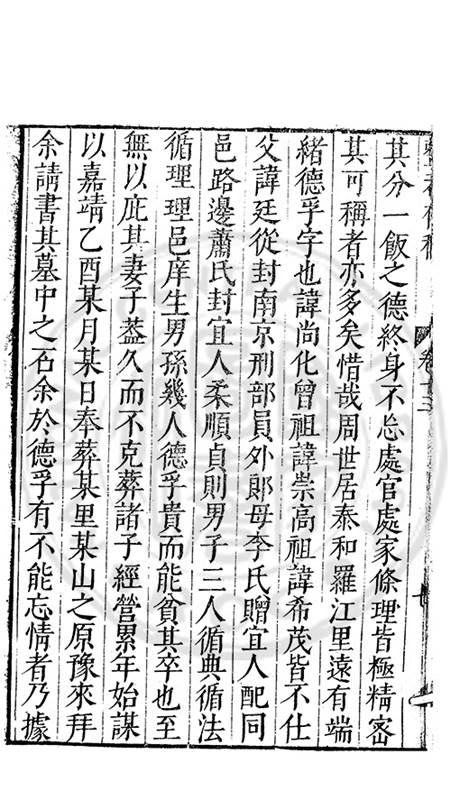 其分一飯之德終身不忘處官處家條理皆極精密
其可稱者亦多矣惜哉周世居泰和羅江里遠有端
緒德孚字也諱尚化曾祖諱崇高祖諱希茂皆不仕
父諱廷從封南京刑部員外郎母李氏贈宜人配同
邑路邊蕭氏封宜人柔順貞則男子三人循典循法
循理理邑庠生男孫幾人德孚貴而能貧其卒也至
無以庇其妻子葢久而不克葬諸子經營累年始謀
以嘉靖乙酉某月某日奉葬某里某山之原豫來拜
余請書其墓中之石余於德孚有不能忘情者乃據